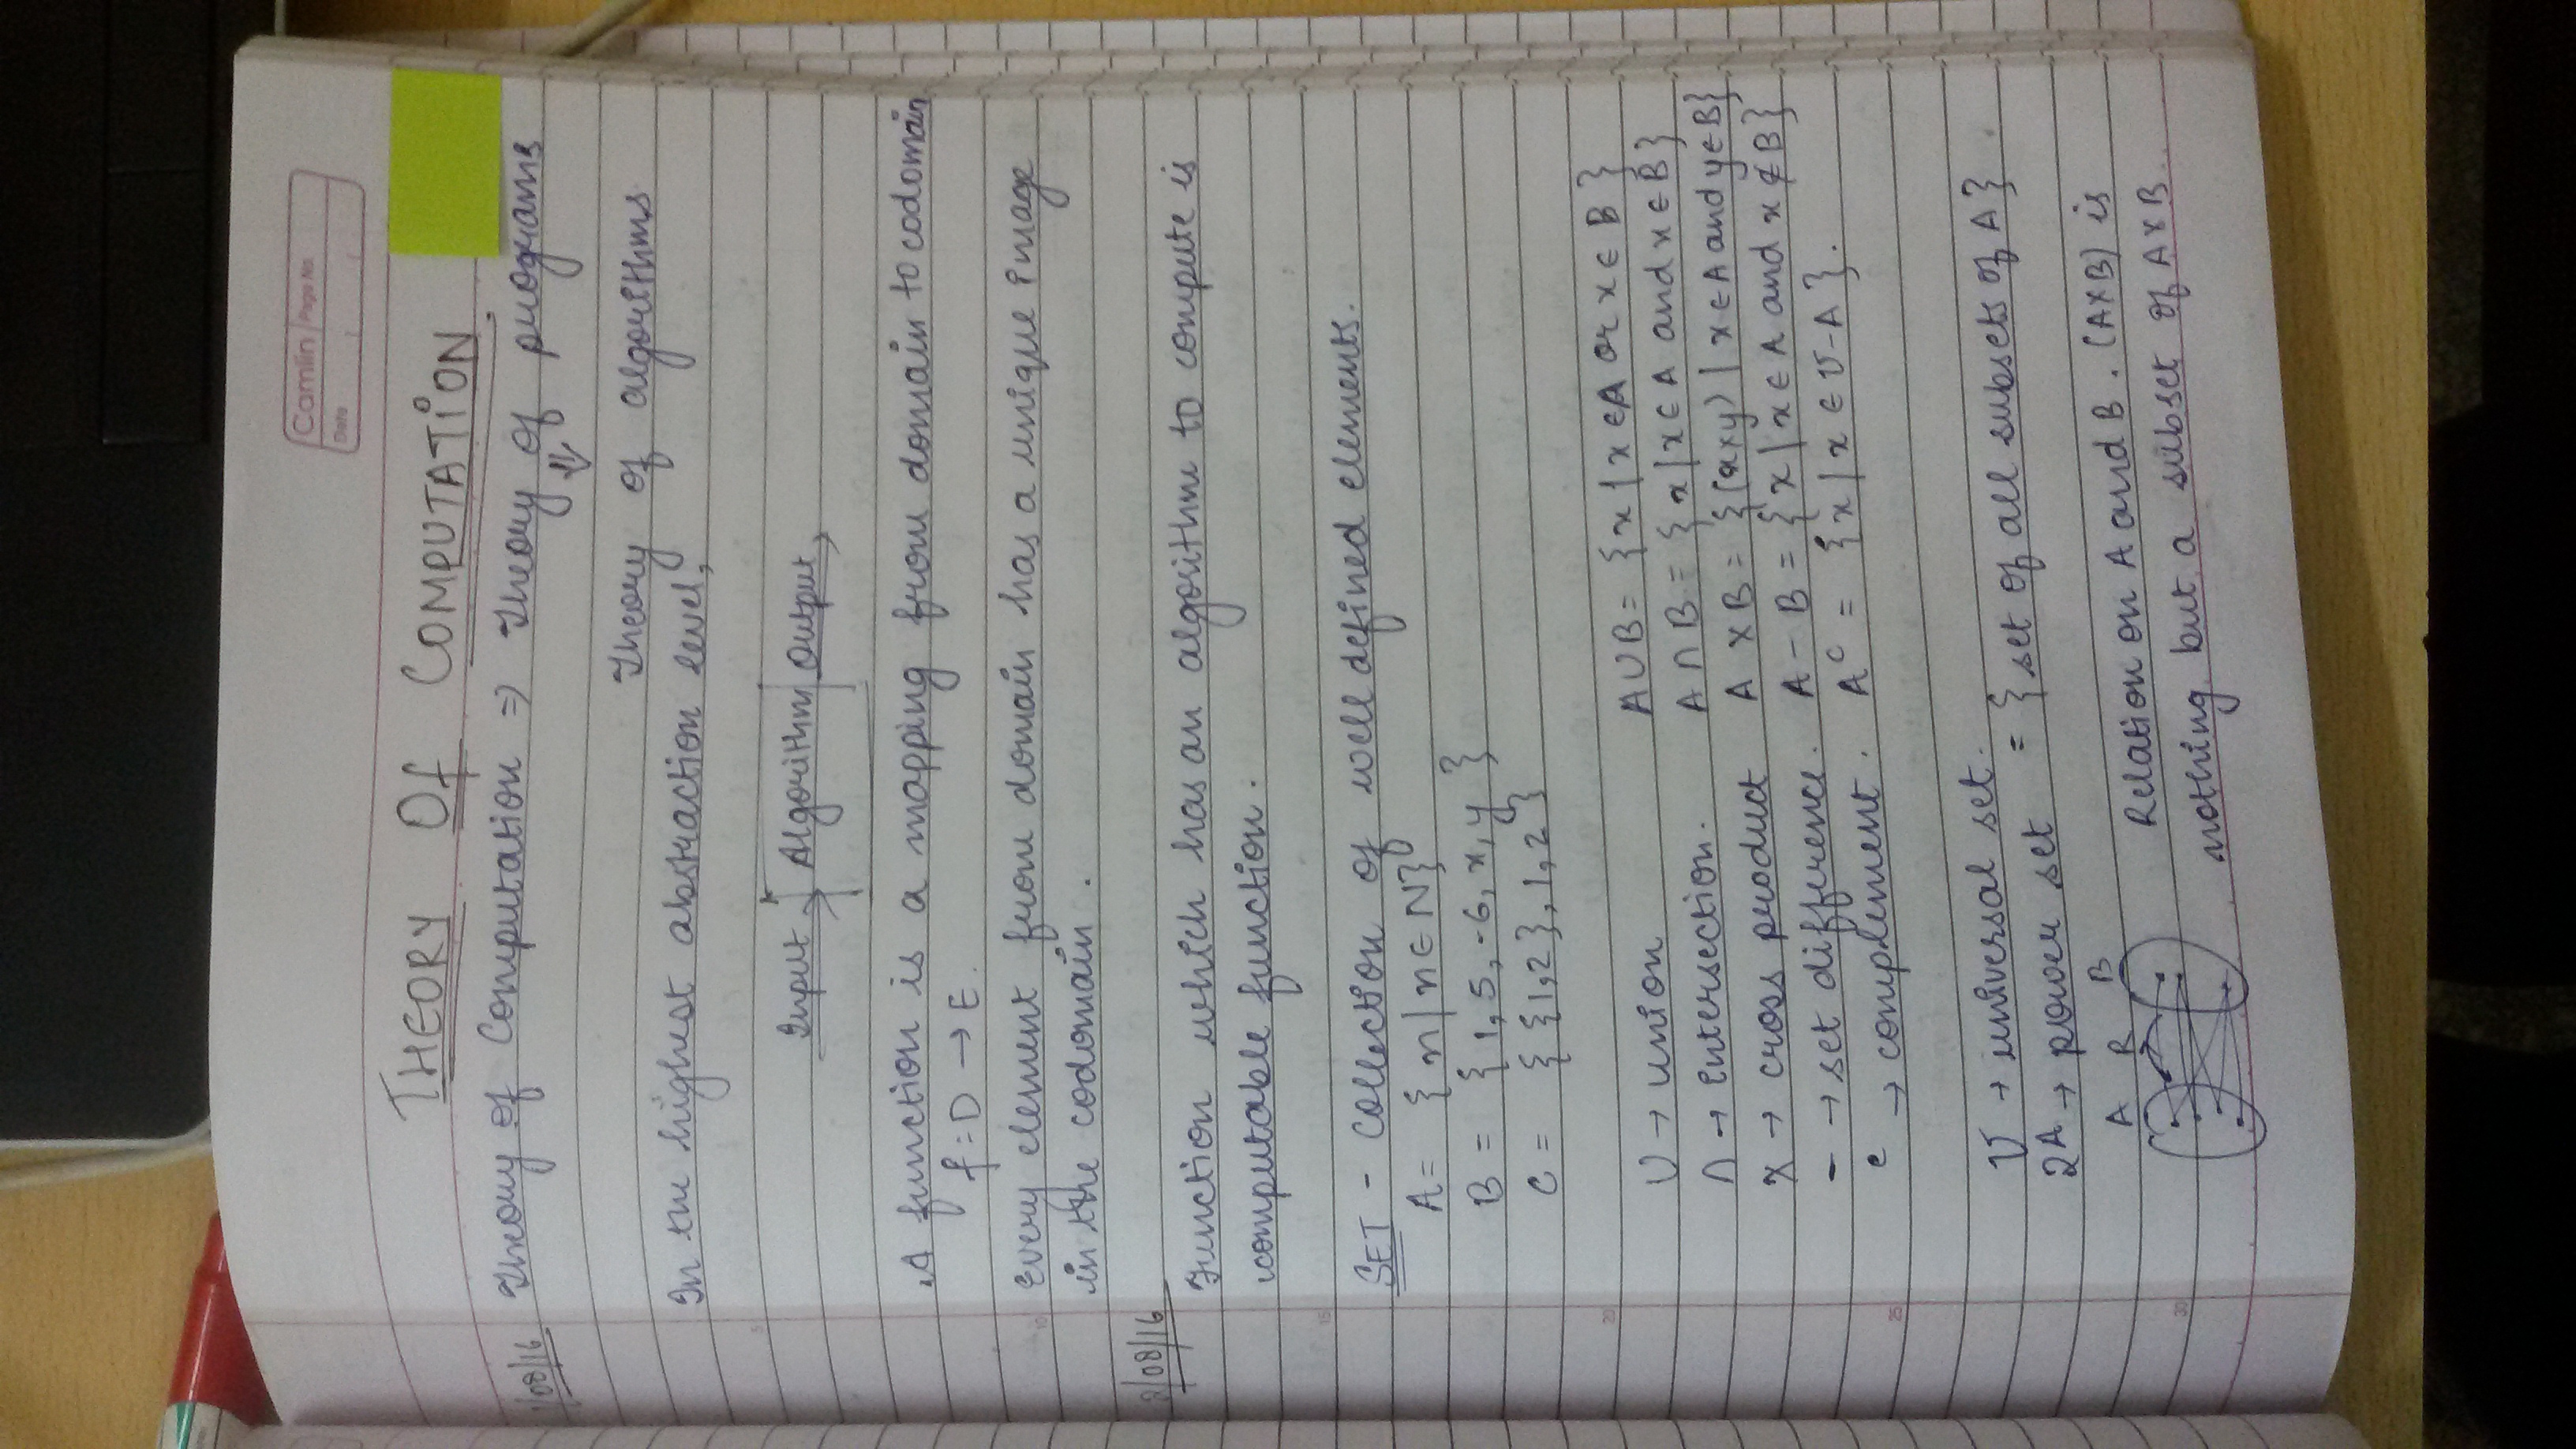 Camlin Page No.
Date / /
THEORY Of COMPUTATION
/08/16 Theory of Computation ⇒ Theory of programs
⇓
Theory of algorithms
In the highest abstraction level,
Input Algorithm Output
A function is a mapping from domain to codomain
f: D → E.
Every element from domain has a unique image
in the codomain.
2/08/16
Function which has an algorithm to compute is
computable function.
SET - Collection of well defined elements.
A = { n | n ∈ N}
B = { 1, 5, -6, x, y }
C = { {1,2}, 1, 2 }
U → union A U B = { x | x ∈ A or x ∈ B }
∩ → intersection. A ∩ B = { x | x ∈ A and x ∈ B }
X → cross product A X B = {(x x y) | x ∈ A and y ∈ B}
- → set difference. A - B = { x | x ∈ A and x ∉ B}
c → complement. A^c = { x | x ∈ U - A }.
U → universal set.
2^A → power set = { set of all subsets of A }
A R B
Relation on A and B. (A X B) is
nothing but a subset of A X B
5
10
15
20
25
30